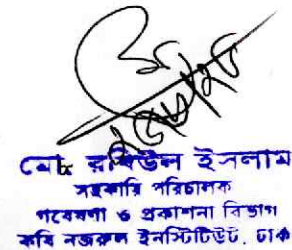 মোঃ রবিউল ইসলাম
সহকারি পরিচালক
গবেষণা ও প্রকাশনা বিভাগ
কবি নজরুল ইনস্টিটিউট, ঢাকা